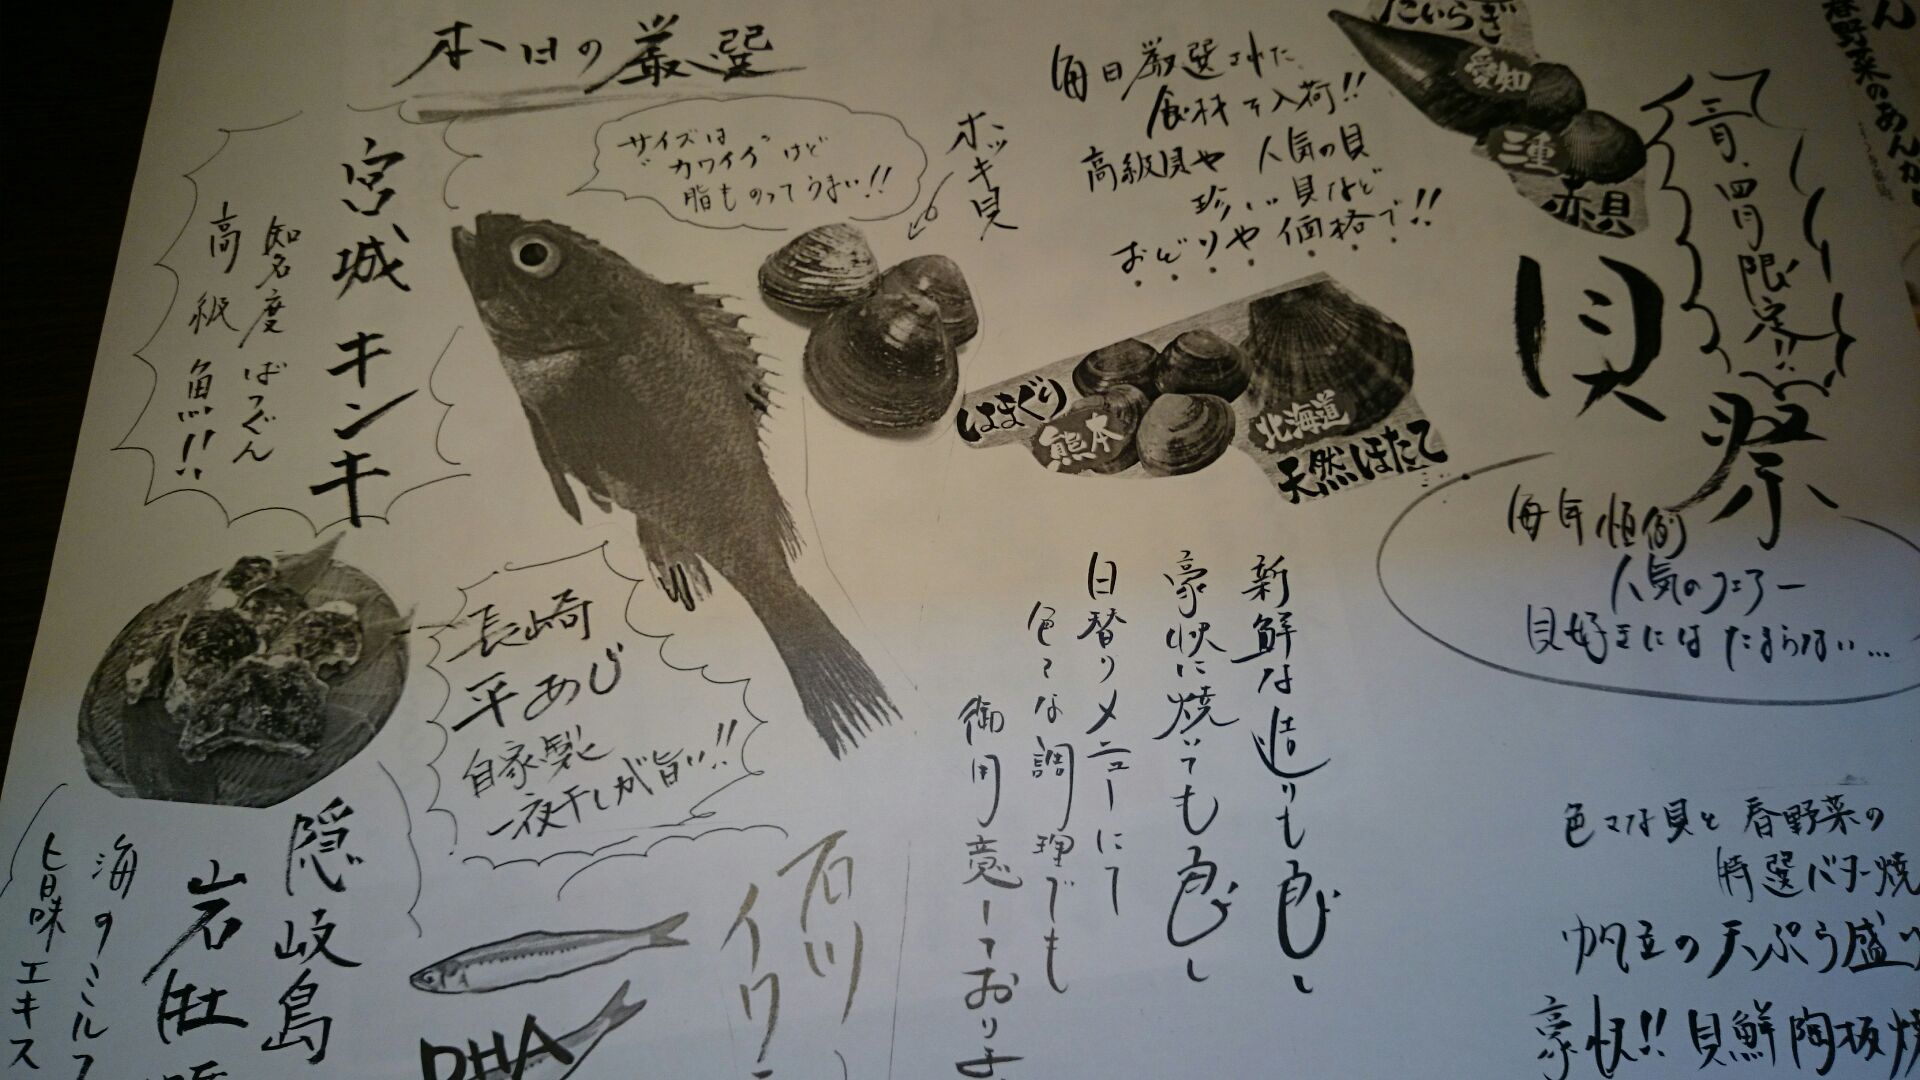 本日の厳選
宮城 キンキ
知名度ばつぐん
高級魚!!
サイズは
"カワイイ"けど
脂ものってうまい!!
ホッキ貝
毎日厳選された
食材を入荷!!
高級貝や 人気の貝
珍しい貝など
おどりや価格で!!
たいらぎ
愛知
三重
赤貝
はまぐり
熊本
北海道
天然ほたて
三月、四月限定!!
貝祭
毎年恒例
人気のフェアー
貝好きにはたまらない…
長崎
平あじ
自家製
一夜干しが旨い!!
新鮮な造りも良し
豪快に焼いても良し
日替りメニューにて
色々な調理でも
御用意しており
隠岐島
岩牡蠣
海のミルク
旨味エキス
石川
イワシ
DHA
色々な貝と春野菜の
特選バター焼
帆立の天ぷら盛り
豪快!!貝鮮陶板焼
春野菜のあんか